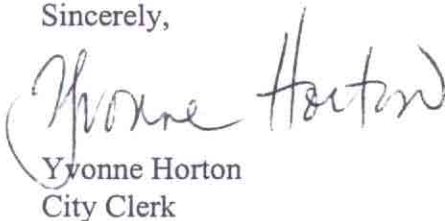 Sincerely,
Yvonne Horton
Yvonne Horton
City Clerk